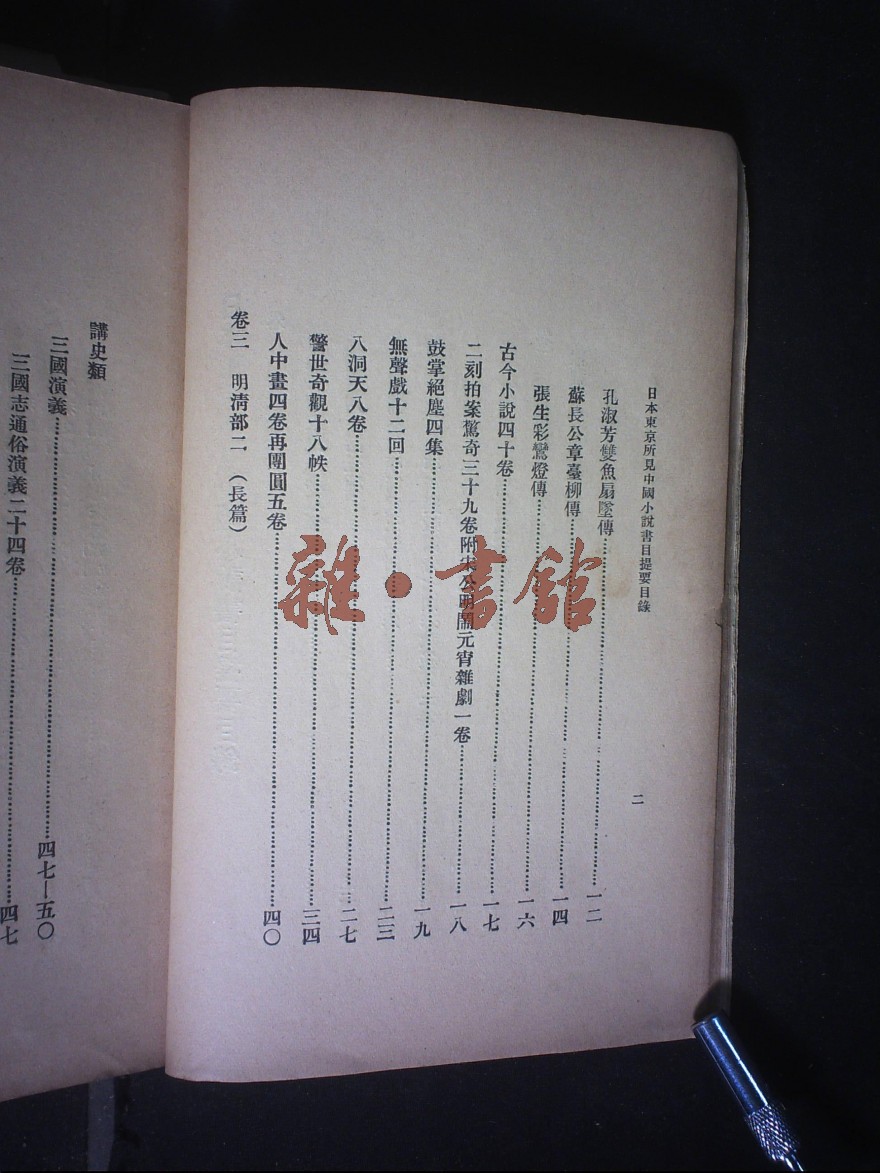 日本東京所見中國小說書目提要目錄
二
孔淑芳雙魚扇墜傳……一二
蘇長公章臺柳傳……一四
張生彩鸞燈傳……一六
古今小說四十卷……一七
二刻拍案驚奇三十九卷附宋公明鬧元宵雜劇一卷……一八
鼓掌絕塵四集……一九
無聲戲十二回……二三
八洞天八卷……二七
警世奇觀十八帙……三四
人中畫四卷再團圓五卷……四〇
卷三 明清部二 (長篇)
講史類
三國演義……四七—五〇
三國志通俗演義二十四卷……四七
雜·書館